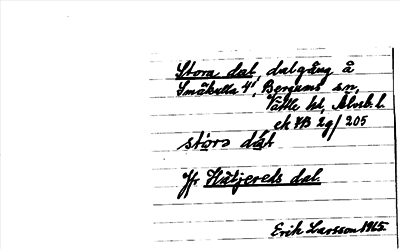 Stora dal, dalgång å
Småkulla 4¹, Bergums sn,
Vättle hd, Älvsb. l.
ek 7B 2g/205
stórò dàt
Jfr Hultjereds dal.
Erik Larsson 1965.